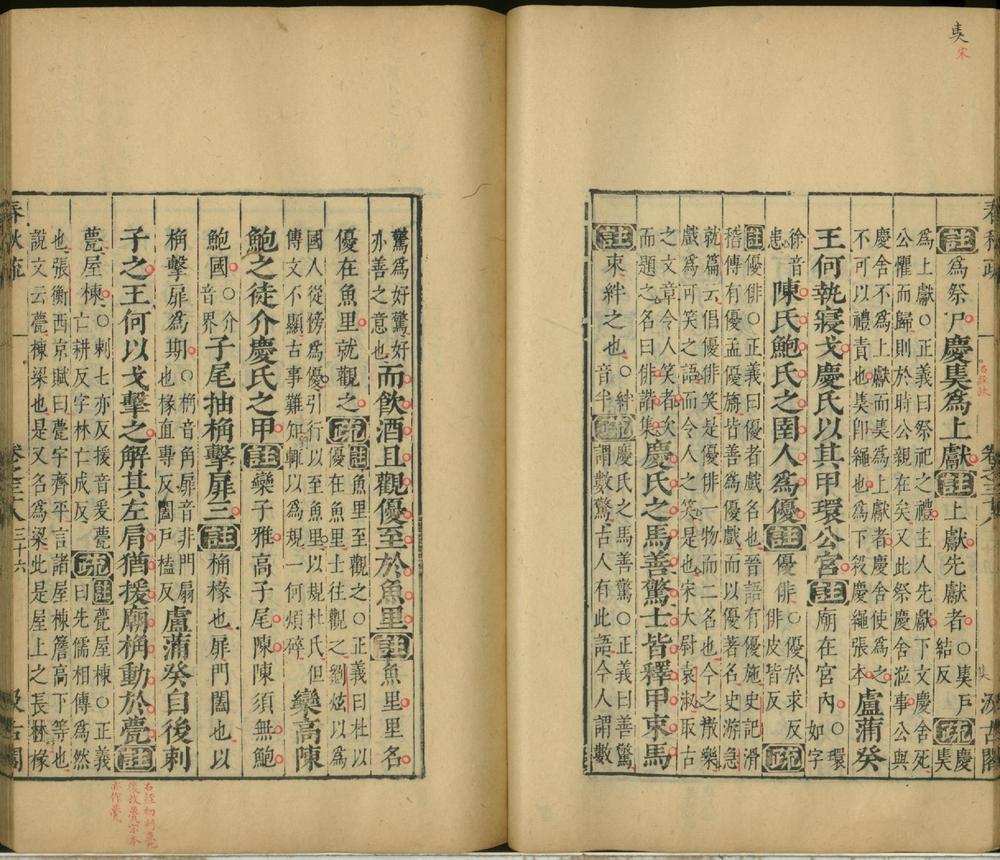 㚖
宋
註為祭尸慶㚖為上獻註上獻先獻者○㚖戶結反疏慶㚖
為上獻○正義曰祭祀之禮主人先獻下文慶舍死
公懼而歸則於時公親在矣又此祭慶舍涖事公與
慶舍不為上獻而㚖為上獻者慶舍使為之
不可以禮責也㚖即繩也為下殺慶繩張本盧蒲癸
王何執寢戈慶氏以其甲環公宮註廟在宮內○環如字
徐音患陳氏鮑氏之圉人為優註優俳○優於求反俳皮皆反疏
註優俳○正義曰優者戲名也晉語有優施史記滑
稽傳有優孟優旃皆善為優戲而以優著名史游急
就篇云倡優俳笑是優俳一物而二名也今之散樂
戲為可笑之語而令人之笑是也宋大尉袁淑取古
之文章令人笑者次
而題之名曰俳諧集慶氏之馬善驚士皆釋甲束馬
註束絆之也○絆音半疏慶氏之馬善驚○正義曰善驚謂數驚古人有此語今人謂數
驚為好驚好亦善之意也而飲酒且觀優至於魚里註魚里里名
優在魚里就觀之疏註魚里至觀之○正義曰杜以優在魚里士往觀之劉炫以為
國人從傍為優引行以至魚里以規杜氏但
傳文不顯古事難知輒以為規一何煩碎欒高陳
鮑之徒介慶氏之甲註欒子雅高子尾陳陳須無鮑
鮑國○介音界子尾抽桷擊扉三註桷椽也扉門闔也以
桷擊扉為期○桷音角扉音非門扇也椽直專反闔戶榼反盧蒲癸自後刺
子之王何以戈擊之解其左肩猶援廟桷動於甍註
甍屋棟○刺七亦反援音爰甍亡耕反字林亡成反疏註甍屋棟○正義曰先儒相傳為然
也張衡西京賦曰甍宇齊平言諸屋棟簷高下等也
說文云甍棟梁也是又名為梁此是屋上之長材椽
春秋疏
卷之三十八
三十六
汲古閣
石經初刻甍
後改甍宋本
亦作甍